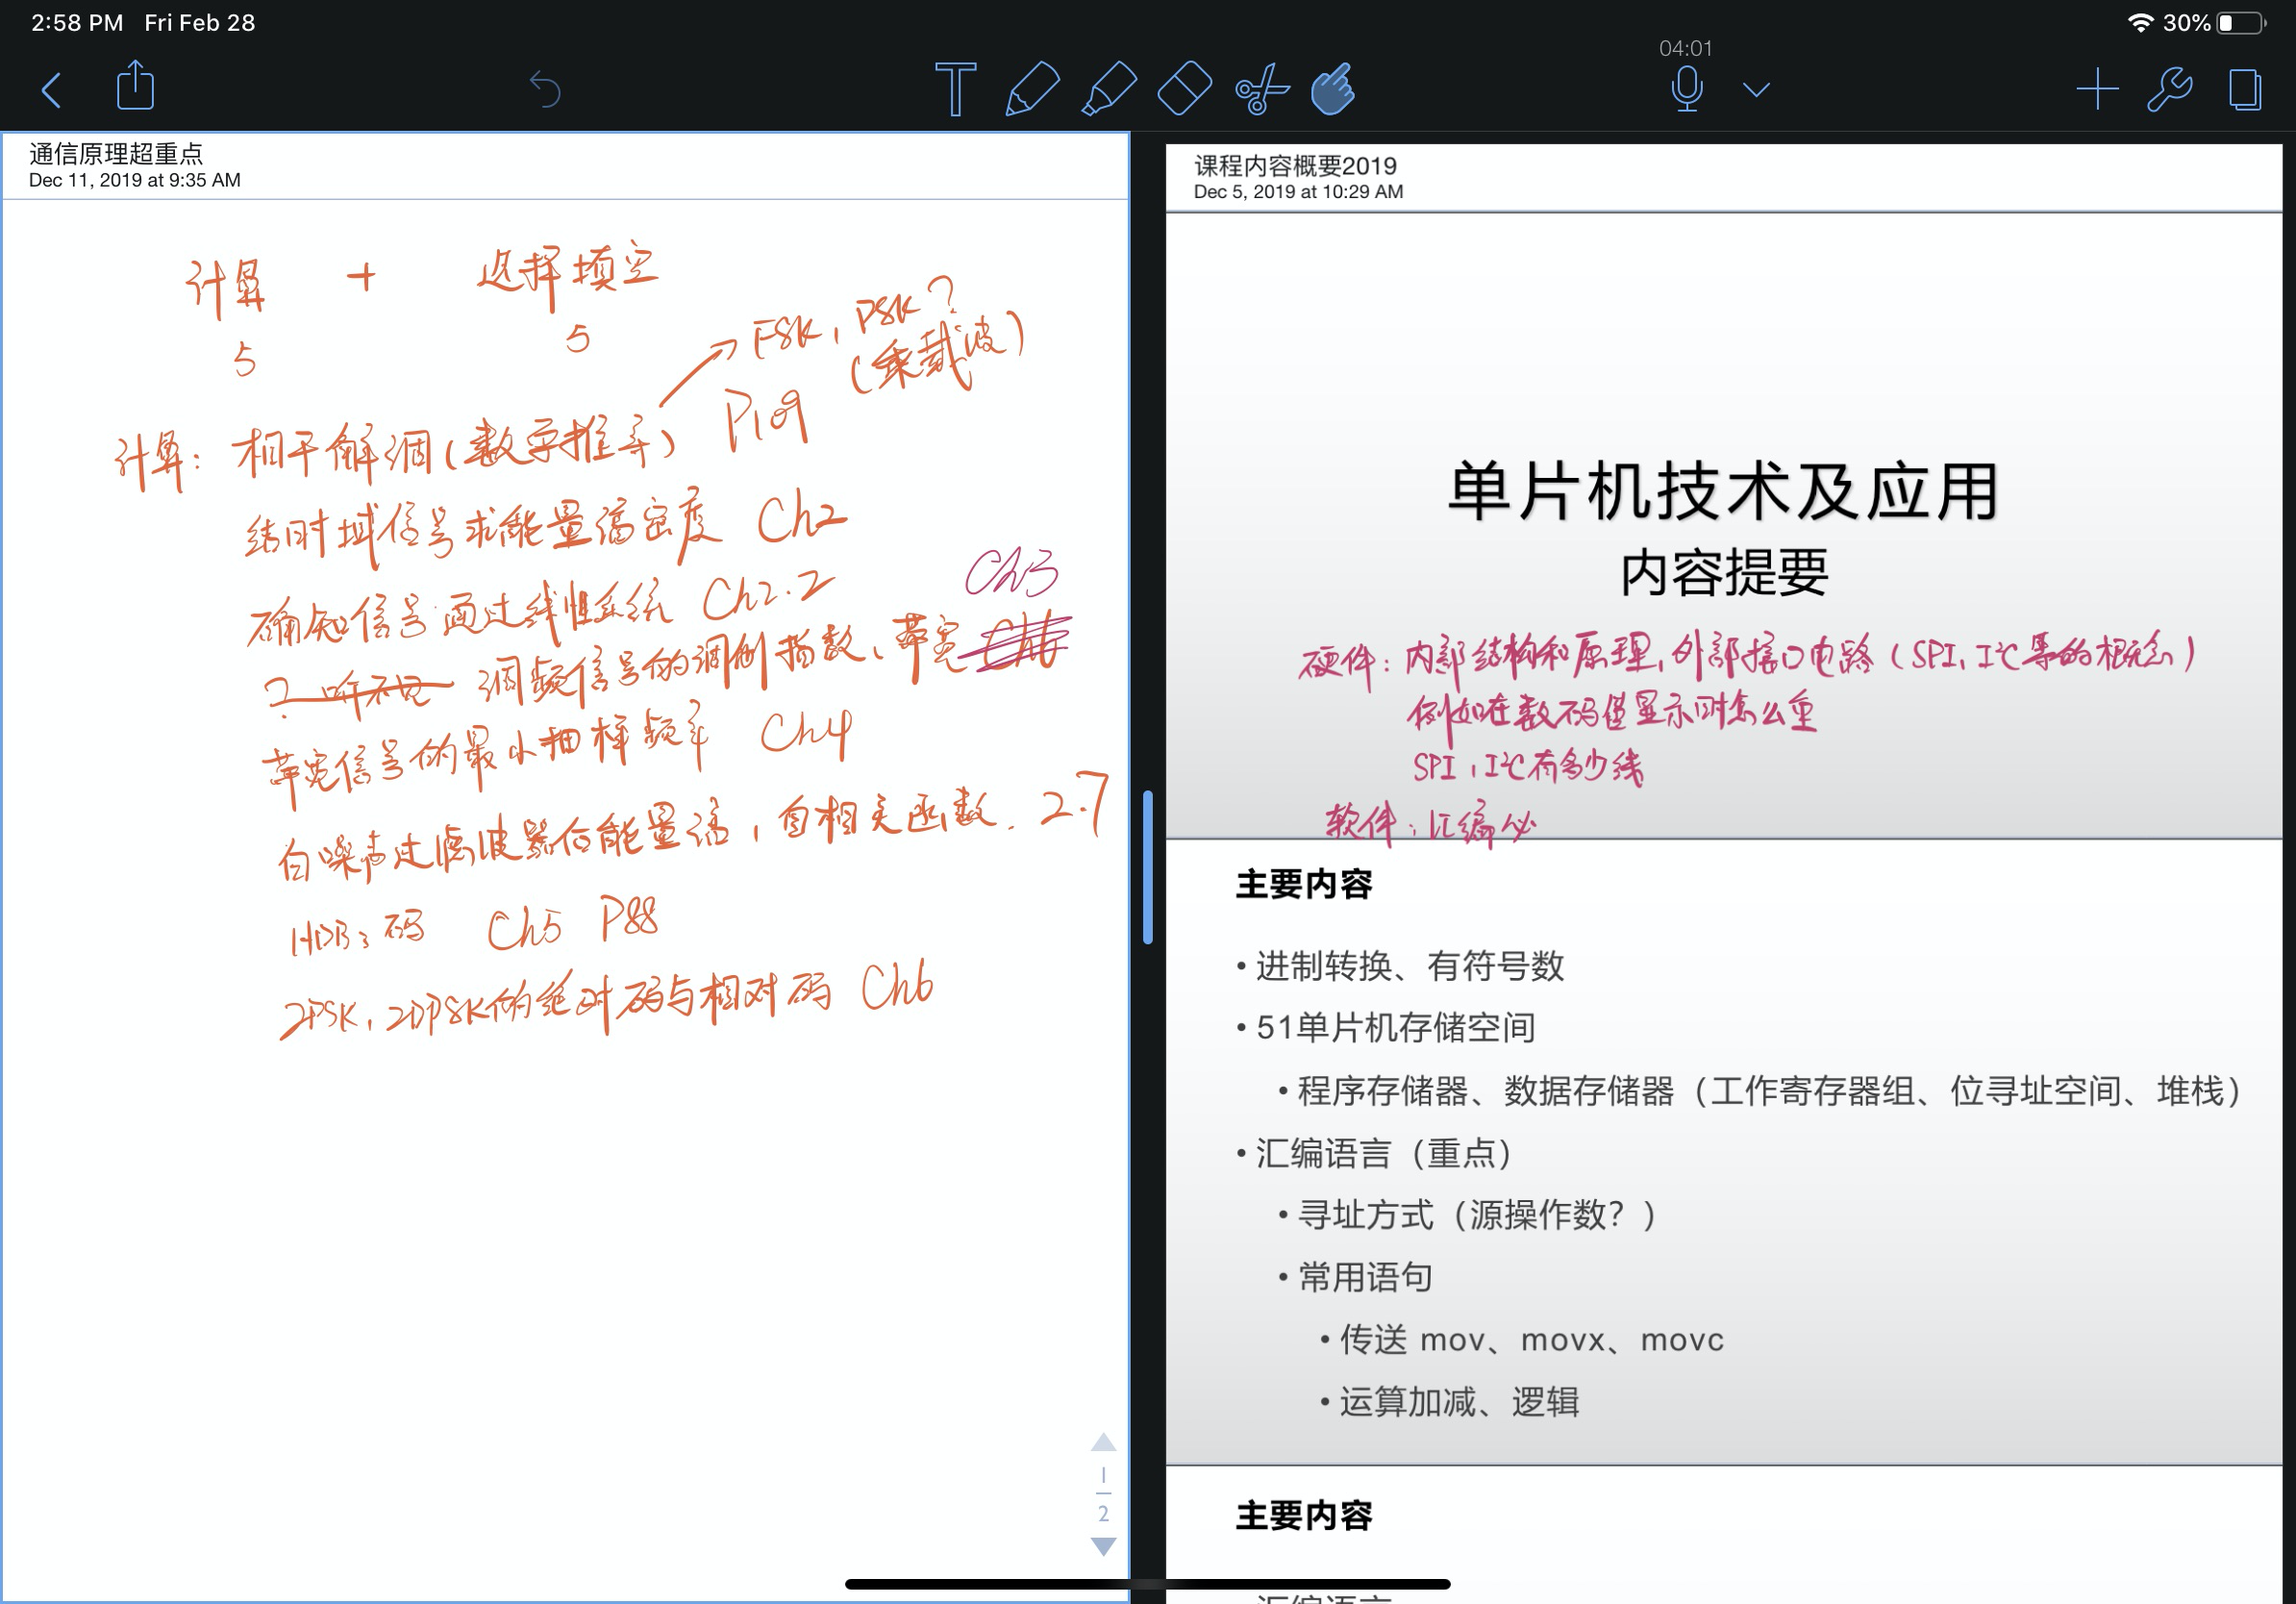 2:58 PM Fri Feb 28
30%
04:01
通信原理超重点
Dec 11, 2019 at 9:35 AM
计算 + 选择填空
5 5
FSK, PSK?
(乘载波)
计算: 相干解调(数学推导) P109
给时域信号求能量谱密度 Ch2
确知信号通过线性系统 Ch2.2
Ch3
? 听不见 调频信号的调制指数、带宽
带宽信号的最小抽样频率 Ch4
白噪声过滤波器后能量谱, 自相关函数. 2.7
HDB3码 Ch5 P88
2PSK, 2DPSK的绝对码与相对码 Ch6
1
2
课程内容概要2019
Dec 5, 2019 at 10:29 AM
单片机技术及应用
内容提要
硬件: 内部结构和原理, 外部接口电路 (SPI, I²C等的概念)
例如在数码管显示时怎么
SPI, I²C有多少线
软件: 汇编
主要内容
• 进制转换、有符号数
• 51单片机存储空间
• 程序存储器、数据存储器（工作寄存器组、位寻址空间、堆栈）
• 汇编语言（重点）
• 寻址方式（源操作数？）
• 常用语句
• 传送 mov、movx、movc
• 运算加减、逻辑
主要内容
汇编语言